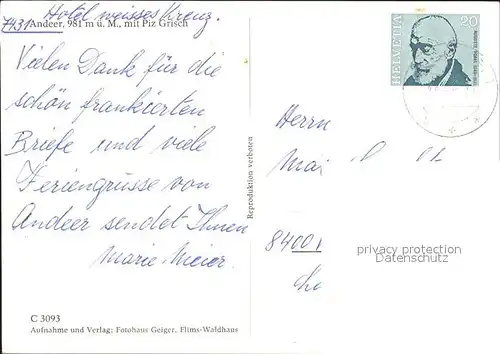 Hotel weisses Kreuz.
7431 Andeer, 981 m ü. M., mit Piz Grisch
Vielen Dank für die
schön frankierten
Briefe und viele
Feriengrüsse von
Andeer sendet Ihnen
Marie Meier.
C 3093
Aufnahme und Verlag: Fotohaus Geiger, Flims-Waldhaus
Reproduktion verboten
HELVETIA
20
Herrn
8400
privacy protection